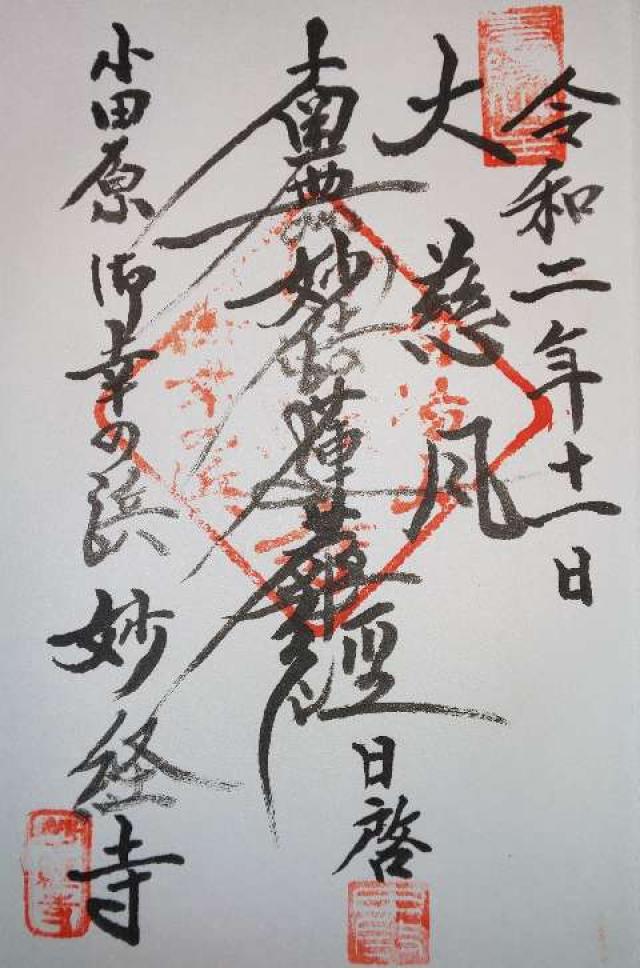 令和二年十一日
大慈風
南無妙法蓮華經
日啓
小田原御幸の浜妙経寺